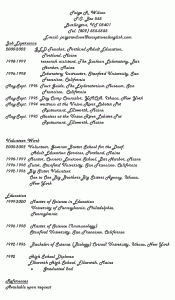 Paige R. Wilson
P.O. Box 365
Burlington, VT 05401
Tel. (802) 555-5555
Job Experience
2000-2003 GED Teacher, Portland Adult Education,
Portland, Maine
1998-1999 research assistant, The Jackson Laboratory, Bar
Harbor, Maine
1996-1998 Laboratory Instructor, Stanford University, San
Francisco, California
Aug-Sept. 1996 Tour Guide, The Exploratorium Museum, San
Francisco, California
Aug-Sept. 1995 Day Camp Counselor, YMCA, Ithaca, New York
Aug-Sept. 1994 waitress at the Union River Lobster Pot
Restaurant, Ellsworth, Maine
Aug-Sept. 1993 Hostess at the Union River Lobster Pot
Restaurant, Ellsworth, Maine
Volunteer Work
2000-2003 Volunteer, Summer School for the Deaf,
Adult Education Services, Portland, Maine
1998-1999 Mentor, Downeast School, Bar Harbor, Maine
1996-1998 Tutor, Stanford University, San Francisco, California
1992-1996 Big Sister Volunteer
One to One Big Brothers Big Sisters Agency, Ithaca,
New York
Education
1999-2000 Master of Science in Education
University of Pennsylvania, Philadelphia,
Pennsylvania
1996-1998 Master of Science (Immunology)
Stanford University, San Francisco, California
1992-1996 Bachelor of Science (Biology) Cornell University, Ithaca, New York
1992 High School Diploma
Ellsworth High School, Ellsworth, Maine
Graduated 2nd
References
Available upon request